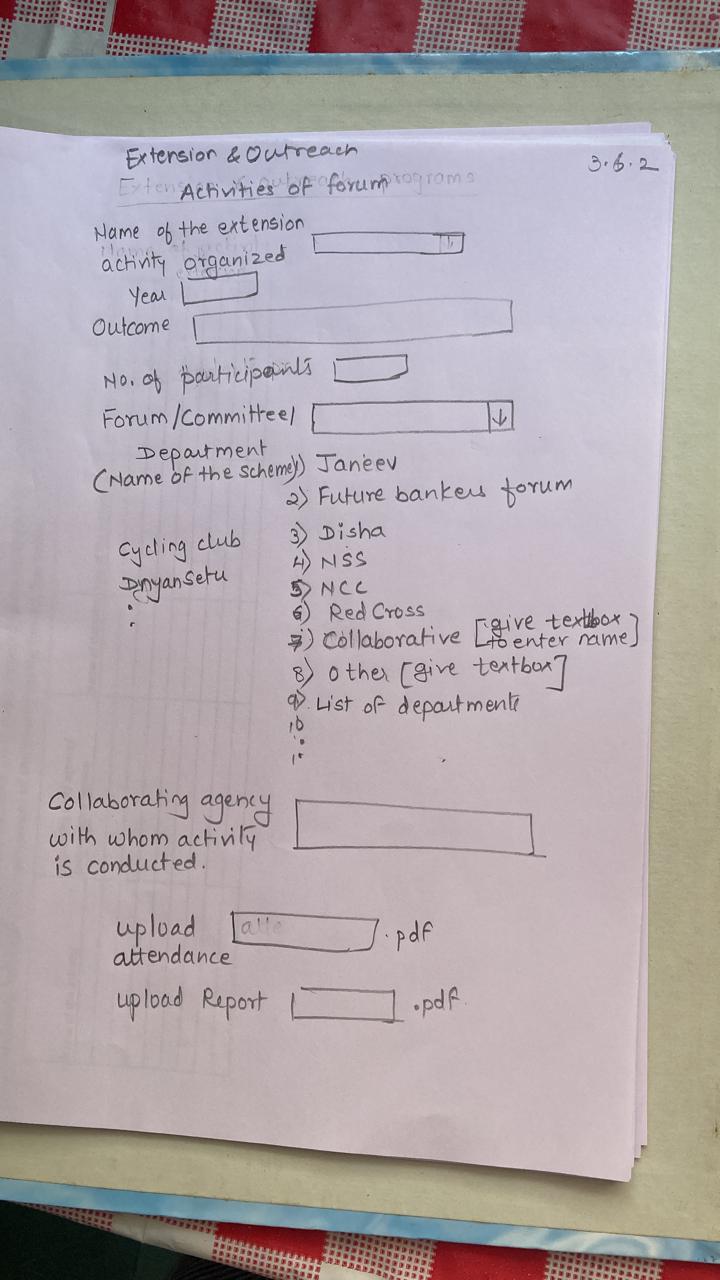 Extension & Outreach
3.6.2
Activities of forum
Name of the extension
activity organized
Year
Outcome
No. of participants
Forum/Committee/
Department
(Name of the scheme)
1) Janeev
2) Future bankers forum
3) Disha
Cycling club
4) NSS
Dnyansetu
5) NCC
6) Red Cross
7) Collaborative [give textbox
to enter name]
8) Other [give textbox]
9) List of departments
10
Collaborating agency
with whom activity
is conducted.
upload
attendance
.pdf
upload Report
.pdf